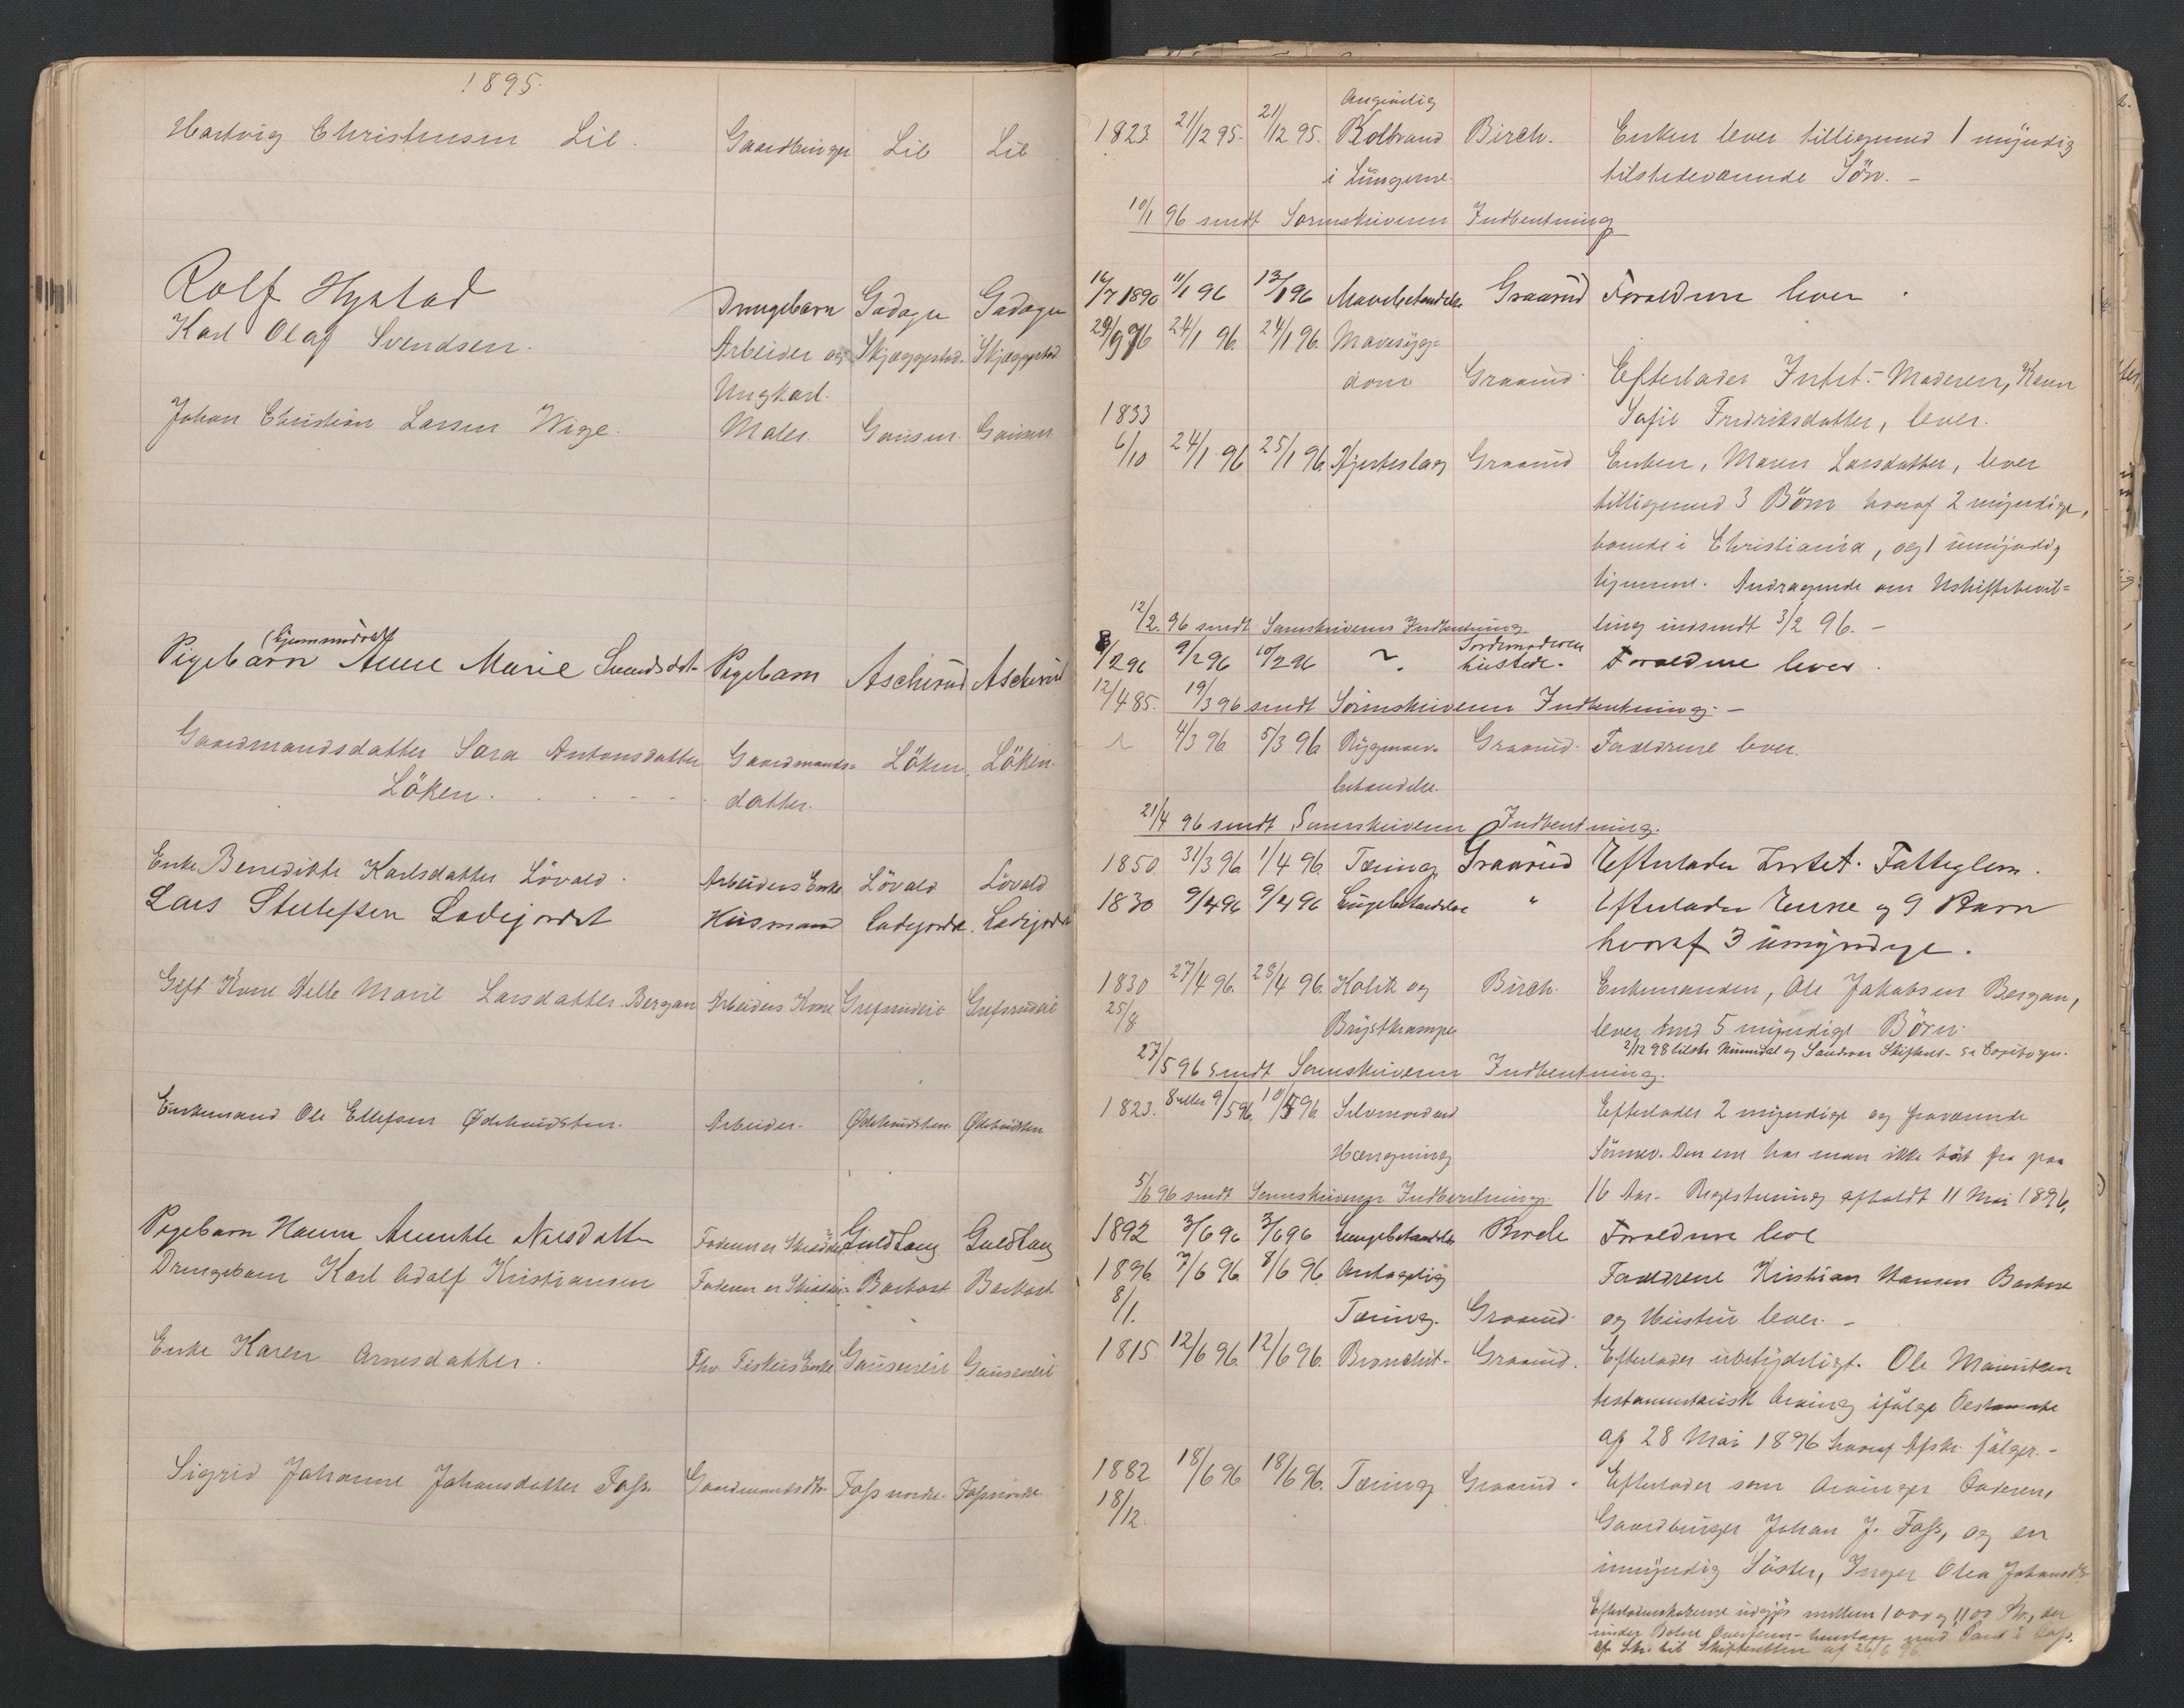 1895.
Hartvig Christensen Lie. Gaardbruger Lie Lie
Rolf Hystad Drengebarn Gadager Gadager
Karl Olaf Svendsen. Arbeider og Skjæggestad. Skjæggestad
Ungkarl.
Johan Christian Larsen Wige. Maler. Gausen. Gausen
(hjemmedøbt)
Pigebarn Anne Marie Svendsdt. Pigebarn Ascherud Ascherud
Gaardmandsdatter Sara Antonsdatter Gaardmands= Löken. Löken.
Löken. datter.
Enke Benedikte Karlsdatter Lövald. Arbeiders Enke Lövald Lövald
Lars Steffensen Ladejordet Husmand Ladejordet. Ladejordet
Gift Kone Helle Marie Larsdatter Bergan Arbeiders Kone Grefsrudeie Grefsrudeie
Enkemand Ole Ellefsen Ødehvidsten. Arbeider. Ødehvidsten Ødehvidsten
Pigebarn Hanna Annette Nilsdatter Faderen er Skrædder Guldhaug Guldhaug
Drengebarn Karl Adolf Kristiansen Faderen er Skrædder Barkost Barkost
Enke Karen Arnesdatter. Fhv. Fiskers Enke Gauseneie Gauseneie
Sigrid Johanne Johansdatter Foss. Gaardmandsdtr. Foss nordre. Foss nordre
Angivelig
1823. 21/12 95. 21/12 95. Koldbrand Birch. Enken lever tilligemed 1 myndig
i Lungerne. tilstedeværende Sön. –
10/1 96 sendt Sorenskriveren Indberetning
16/7 1890 11/1 96 13/1 96 Mavebetændelse Graarud Forældrene lever.
29/9 76 24/1 96. 24/1 96. Mavesyg=
dom Graarud. Efterlader Intet.– Moderen, Karen
1833 Sofie Fredriksdatter, lever.
6/10 24/1 96 25/1 96. Hjerteslag Graarud Enken, Maren Larsdatter, lever
tilligemed 3 Börn hvoraf 2 myndige,
boende i Christiania, og 1 umyndig
hjemme. Andragende om Uskiftebevil=
12/2. 96 sendt Sorenskriveren Indberetning ling indsendt 3/2 96. –
Jordemoderen
8/2 96 9/2 96 10/2 96 ~. Forældrene lever.
12/4 85. 19/3 96 sendt Sorenskriveren Indberetning. –
4/3 96 5/3 96 Rygmarvs Graarud. Forældrene lever.
betændelse.
21/4 96 sendt Sorenskriveren Indberetning.
1850. 31/3 96 1/4 96. Tæring Graarud Efterlader Intet. Fattiglem.
1830 9/4 96 9/4 96 Lungebetændelse " Efterlader Enke og 9 Barn
hvoraf 3 umyndige.
1830 27/4 96. 28/4 96. Kolik og Birch. Enkemanden, Ole Jakobsen Bergan,
25/8 Brystkrampe lever med 5 myndige Börn.
2/12 98 tilstr. Numedal og Sandsvær Skifteret – se Copibogen.
27/5 96 sendt Sorenskriveren Indberetning.
1823. 8 eller 9/5 96. 10/5 96 Selvmord ved Efterlader 2 myndige og fraværende
Hængning Sönner. Den ene har man ikke hört fra paa
5/6 96 sendt Sorenskriveren Indberetning. 16 Aar. Registrering afholdt 11 Mai 1896.
1892 3/6 96 3/6 96 Lungebetændelse Birch Forældrene leve
1896. 7/6 96. 8/6 96. Antagelig Forældrene Kristian Hansen Barkost
8/1. Tæring. Graarud. og Hustru lever. –
1815 12/6 96. 12/6 96. Bronchit. Graarud. Efterlader ubetydeligt. Ole Mauritsen
testamentarisk Arving ifölge Testamente
af 28 Mai 1896 hvoraf Afskr. fölger. –
1882 18/6 96 18/6 96. Tæring Graarud. Efterlader som Arvinger Faderen,
18/12. Gaardbruger Johan J. Foss, og en
umyndig Söster, Inger Olea Johansdtr.
Efterladenskaberne udgjör mellem 1000 og 1100 Kr., der
under med Pant i Foss.
Skr. til Skifteretten af 26/6 96.